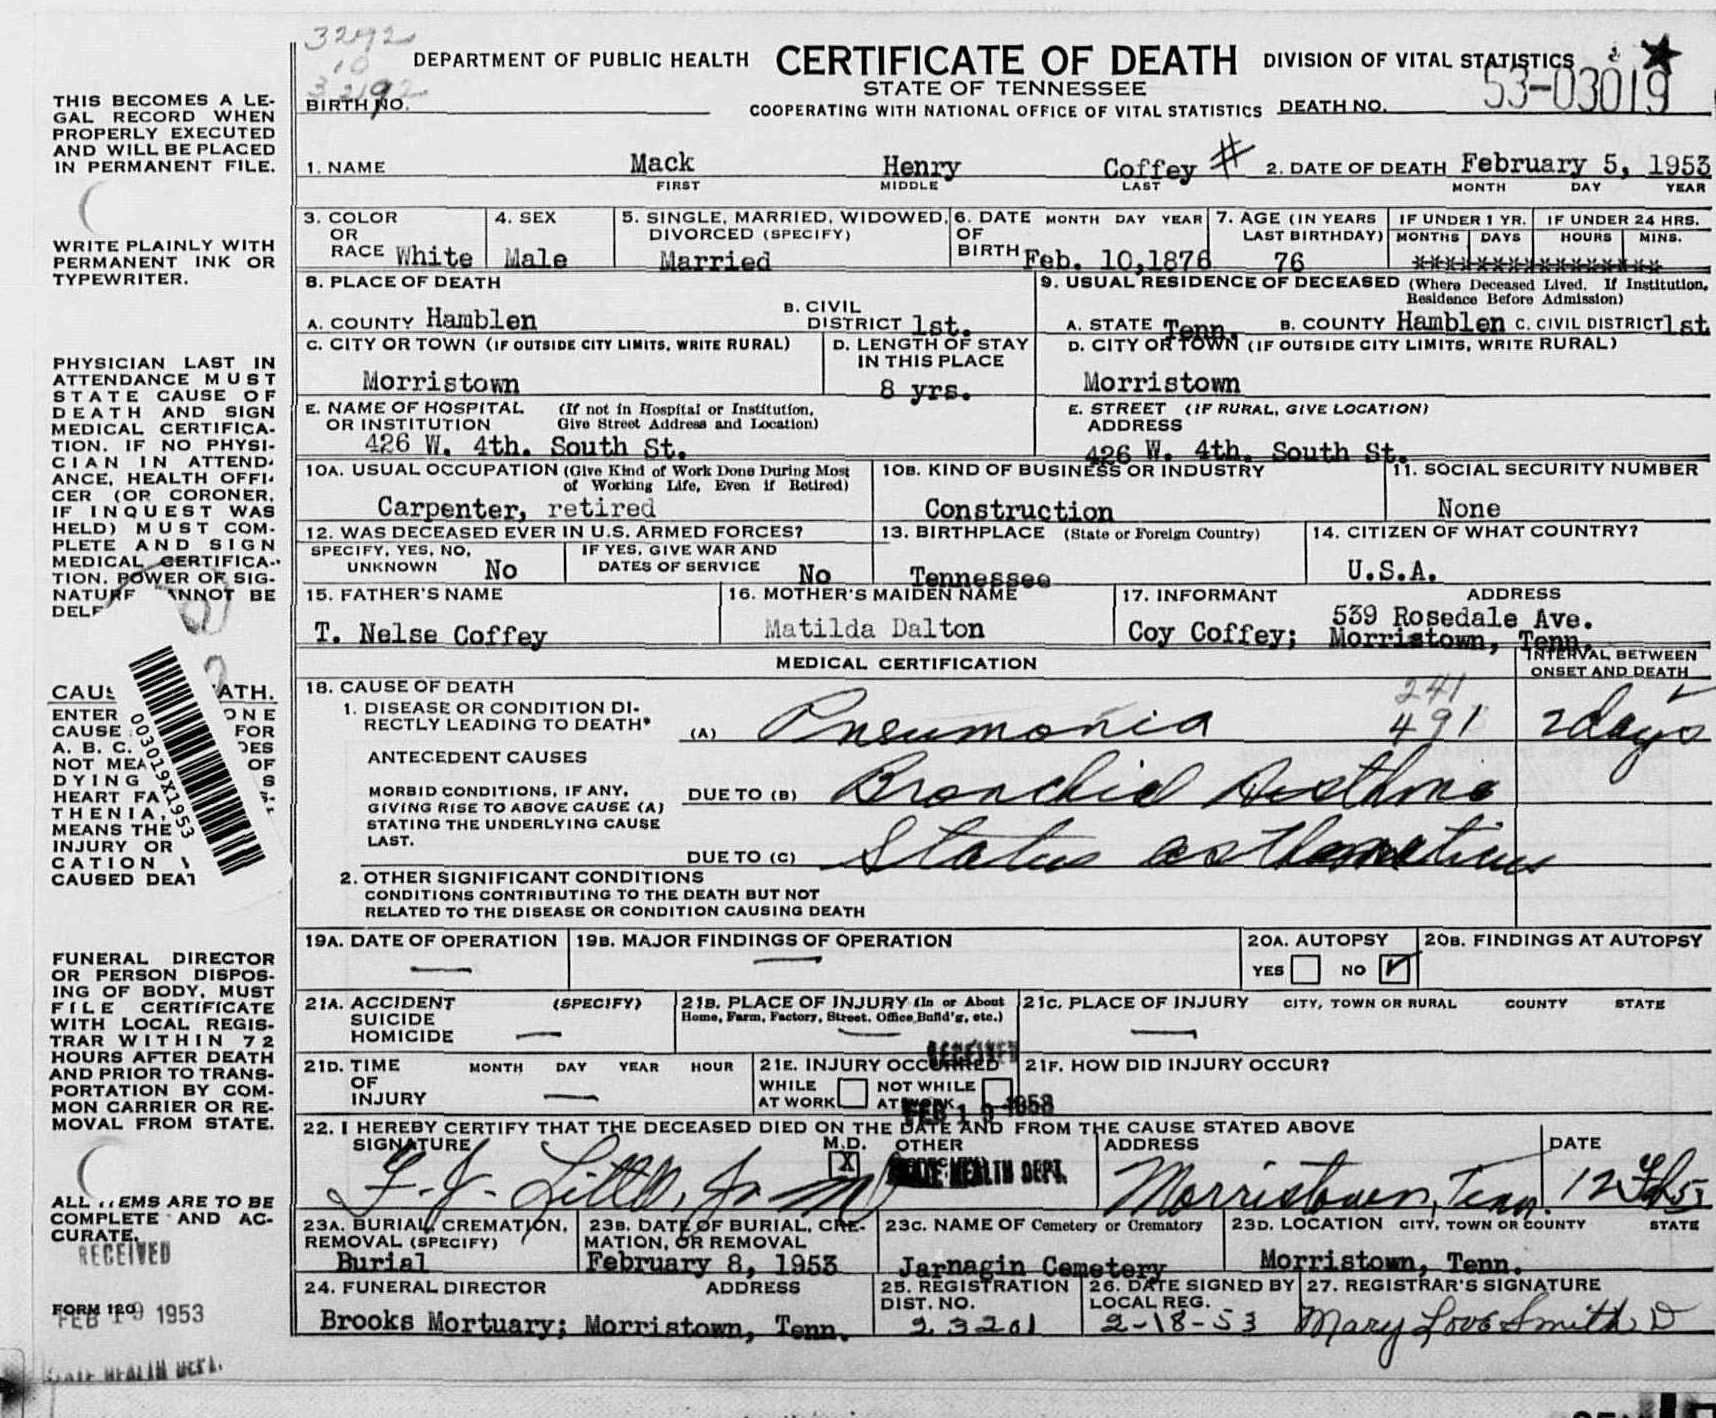 3292
10
3292
DEPARTMENT OF PUBLIC HEALTH CERTIFICATE OF DEATH DIVISION OF VITAL STATISTICS
STATE OF TENNESSEE
BIRTH NO. COOPERATING WITH NATIONAL OFFICE OF VITAL STATISTICS DEATH NO. 53-03019
1. NAME Mack Henry Coffey # 2. DATE OF DEATH February 5, 1953
FIRST MIDDLE LAST MONTH DAY YEAR
3. COLOR OR RACE White
4. SEX Male
5. SINGLE, MARRIED, WIDOWED, DIVORCED (SPECIFY) Married
6. DATE OF BIRTH MONTH DAY YEAR Feb. 10,1876
7. AGE (IN YEARS LAST BIRTHDAY) 76
IF UNDER 1 YR. MONTHS DAYS
IF UNDER 24 HRS. HOURS MINS.
8. PLACE OF DEATH
A. COUNTY Hamblen B. CIVIL DISTRICT 1st.
9. USUAL RESIDENCE OF DECEASED (Where Deceased Lived. If Institution, Residence Before Admission)
A. STATE Tenn. B. COUNTY Hamblen C. CIVIL DISTRICT 1st
C. CITY OR TOWN (IF OUTSIDE CITY LIMITS, WRITE RURAL)
Morristown
D. LENGTH OF STAY IN THIS PLACE
8 yrs.
D. CITY OR TOWN (IF OUTSIDE CITY LIMITS, WRITE RURAL)
Morristown
E. NAME OF HOSPITAL OR INSTITUTION (If not in Hospital or Institution, Give Street Address and Location)
426 W. 4th. South St.
E. STREET ADDRESS (IF RURAL, GIVE LOCATION)
426 W. 4th. South St.
10A. USUAL OCCUPATION (Give Kind of Work Done During Most of Working Life, Even if Retired)
Carpenter, retired
10B. KIND OF BUSINESS OR INDUSTRY
Construction
11. SOCIAL SECURITY NUMBER
None
12. WAS DECEASED EVER IN U.S. ARMED FORCES?
SPECIFY, YES, NO, UNKNOWN No
IF YES, GIVE WAR AND DATES OF SERVICE No
13. BIRTHPLACE (State or Foreign Country)
Tennessee
14. CITIZEN OF WHAT COUNTRY?
U.S.A.
15. FATHER'S NAME
T. Nelse Coffey
16. MOTHER'S MAIDEN NAME
Matilda Dalton
17. INFORMANT ADDRESS
Coy Coffey; 539 Rosedale Ave. Morristown, Tenn.
MEDICAL CERTIFICATION
INTERVAL BETWEEN ONSET AND DEATH
18. CAUSE OF DEATH
1. DISEASE OR CONDITION DIRECTLY LEADING TO DEATH* (A) Pneumonia 241 491 2 days
ANTECEDENT CAUSES
MORBID CONDITIONS, IF ANY, GIVING RISE TO ABOVE CAUSE (A) STATING THE UNDERLYING CAUSE LAST.
DUE TO (B) Bronchial Asthma
DUE TO (C) Status asthmaticus
2. OTHER SIGNIFICANT CONDITIONS
CONDITIONS CONTRIBUTING TO THE DEATH BUT NOT
RELATED TO THE DISEASE OR CONDITION CAUSING DEATH
19A. DATE OF OPERATION —
19B. MAJOR FINDINGS OF OPERATION —
20A. AUTOPSY YES NO ✓
20B. FINDINGS AT AUTOPSY
21A. ACCIDENT SUICIDE HOMICIDE (SPECIFY) —
21B. PLACE OF INJURY (In or About Home, Farm, Factory, Street, Office Build'g, etc.) —
21C. PLACE OF INJURY CITY, TOWN OR RURAL COUNTY STATE —
21D. TIME OF INJURY MONTH DAY YEAR HOUR —
21E. INJURY OCCURRED WHILE AT WORK NOT WHILE AT WORK
21F. HOW DID INJURY OCCUR?
RECEIVED
FEB 19 1953
STATE HEALTH DEPT.
22. I HEREBY CERTIFY THAT THE DECEASED DIED ON THE DATE AND FROM THE CAUSE STATED ABOVE
SIGNATURE M.D. OTHER ADDRESS DATE
F. J. Little, Jr. X Morristown, Tenn. 12 Feb 53
23A. BURIAL, CREMATION, REMOVAL (SPECIFY)
Burial
23B. DATE OF BURIAL, CREMATION, OR REMOVAL
February 8, 1953
23C. NAME OF Cemetery or Crematory
Jarnagin Cemetery
23D. LOCATION CITY, TOWN OR COUNTY STATE
Morristown, Tenn.
24. FUNERAL DIRECTOR ADDRESS
Brooks Mortuary; Morristown, Tenn.
25. REGISTRATION DIST. NO.
23201
26. DATE SIGNED BY LOCAL REG.
2-18-53
27. REGISTRAR'S SIGNATURE
Mary Love Smith D
THIS BECOMES A LE-
GAL RECORD WHEN
PROPERLY EXECUTED
AND WILL BE PLACED
IN PERMANENT FILE.
WRITE PLAINLY WITH
PERMANENT INK OR
TYPEWRITER.
PHYSICIAN LAST IN
ATTENDANCE MUST
STATE CAUSE OF
DEATH AND SIGN
MEDICAL CERTIFICA-
TION. IF NO PHYSI-
CIAN IN ATTEND-
ANCE, HEALTH OFFI-
CER (OR CORONER,
IF INQUEST WAS
HELD) MUST COM-
PLETE AND SIGN
MEDICAL CERTIFICA-
TION. POWER OF SIG-
NATURE CANNOT BE
DELE
CAUS ATH.
ENTER ONE
CAUSE FOR
A. B. C. OES
NOT MEA OF
DYING S
HEART FA S-
THENIA,
MEANS THE
INJURY OR
CATION
CAUSED DEAT
003019X1953
FUNERAL DIRECTOR
OR PERSON DISPOS-
ING OF BODY, MUST
FILE CERTIFICATE
WITH LOCAL REGIS-
TRAR WITHIN 72
HOURS AFTER DEATH
AND PRIOR TO TRANS-
PORTATION BY COM-
MON CARRIER OR RE-
MOVAL FROM STATE.
ALL ITEMS ARE TO BE
COMPLETE AND AC-
CURATE.
RECEIVED
FORM 120
FEB 19 1953
STATE HEALTH DEPT.